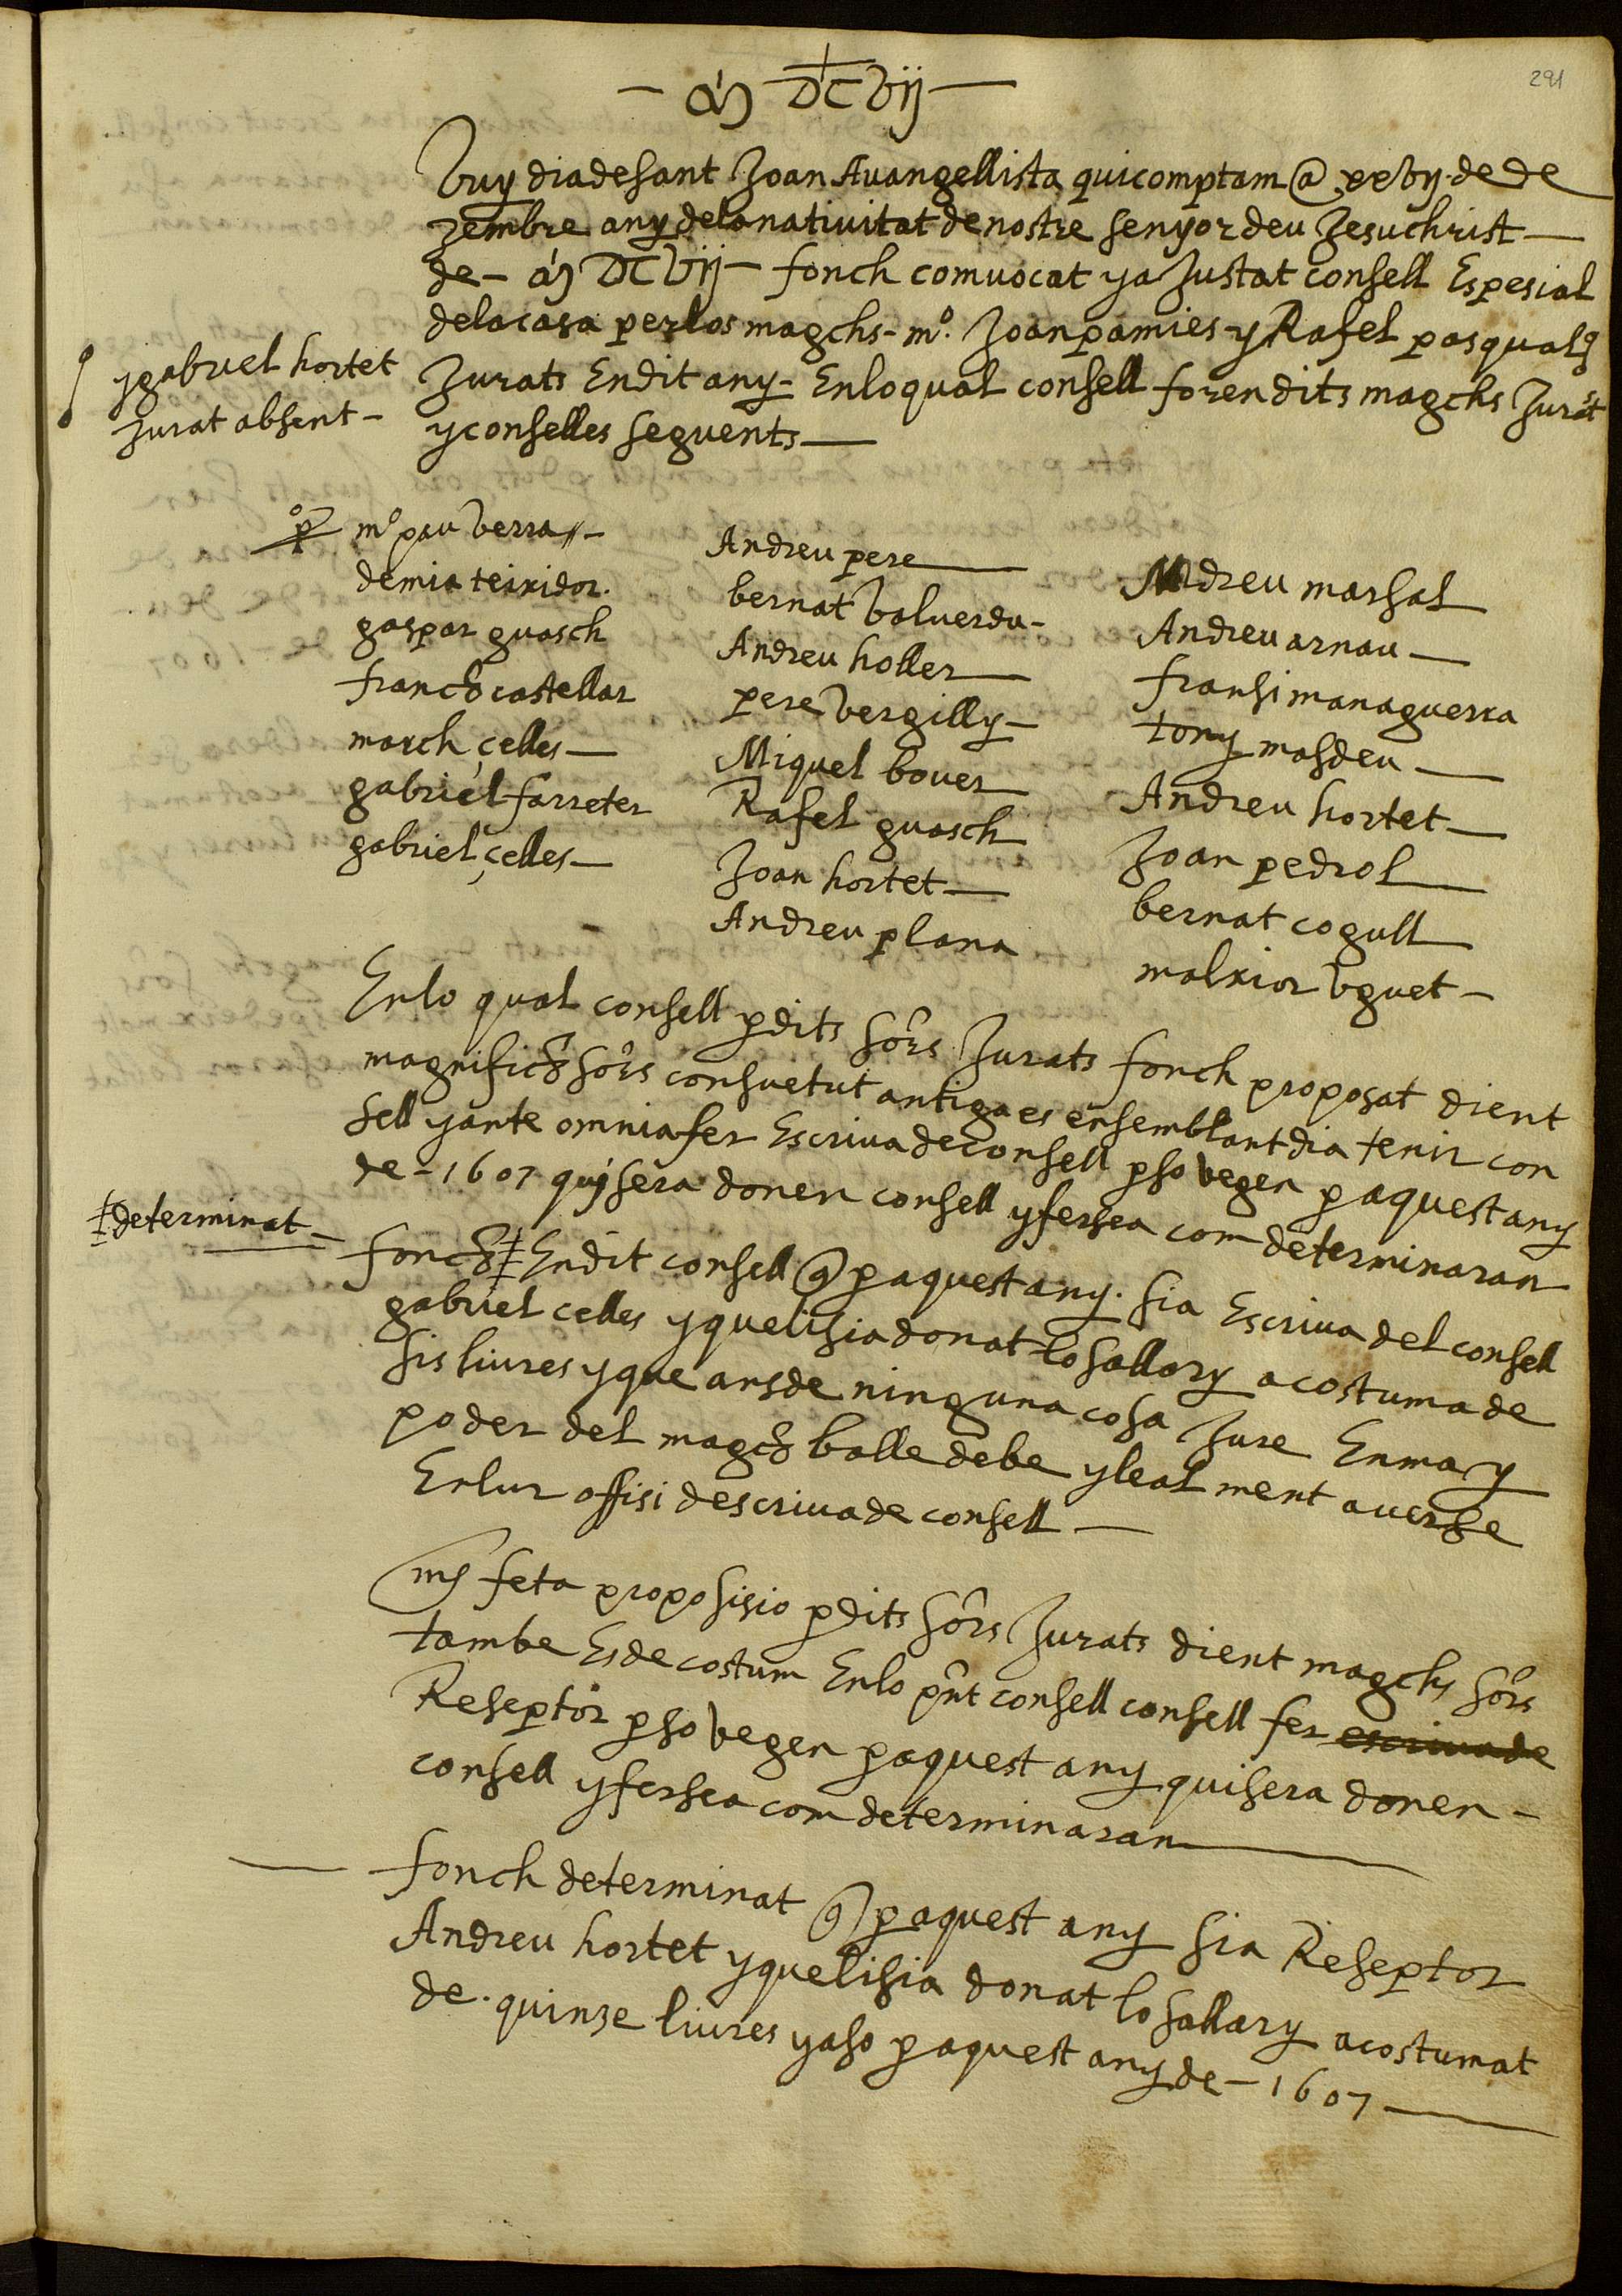 291
— ɑ̃ɱ DC Vij —
Vuy dia de sant Joan Auangellista qui comptam @ xxvij. de de
zembre any de la natiuitat de nostre senyor deu Jesuchrist —
de — ɑ̃ɱ DC Vij — fonch comuocat y a Justat consell Espesial
de la casa per los magchs - mº. Joan pamies - y Rafel pasqual
y gabriel hortet
Jurat absent —
Jurats En dit any - En lo qual consell foren dits magchs Jurats
y conselles seguents —
mº pau Verra —
demia teixidor.
gaspar guasch
franch castellar
march çelles —
gabriel farreter
gabriel çelles —
Andreu pere —
bernat Valuerdu —
Andreu holler —
pere Vergilly —
Miquel bouer
Rafel guasch
Joan hortet —
Andreu plana
Andreu marsal
Andreu arnau —
fransi managuerra
tony masdeu —
Andreu hortet —
Joan pedrol —
bernat cogull
malxior vguet —
En lo qual consell p dits sors Jurats fonch proposat dient
magnifichs sors consuetut antiga es en semblant dia tenir con
sell y ante omnia fer Escriua de consell p so vegen p aquest any
de - 1607 quj sera donen consell y fersea com determinaran
‡ determinat —
fonch ‡ En dit consell q p aquest any. sia Escriua del consell
gabriel celles y que li sia donat lo sallary acostuma de
sis liures y que ans de ninguna cosa Jure En ma y
poder del magch balle de be y leal ment auerse
En lur offisi descriua de consell —
ms feta proposisio p dits sors Jurats dient magchs sors
tambe Es de costum En lo pnt consell consell fer escriua de
Reseptor p so vegen p aquest any qui sera donen —
consell y fersea com determinaran —
— fonch determinat q p aquest any sia Reseptor
Andreu hortet y que li sia donat lo sallary acostumat
de. quinze liures y aso p aquest any de — 1607 —